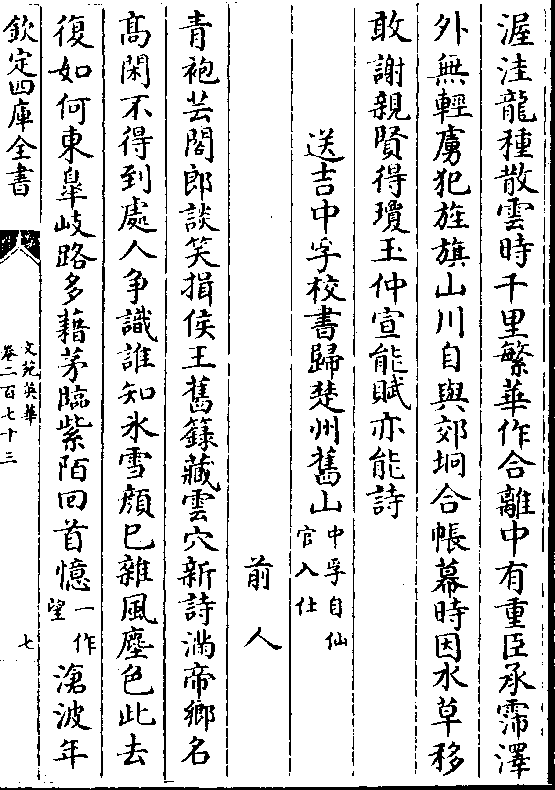 渥洼龍種散雲時千里繁華作合離中有重臣承霈澤
外無輕虜犯旌旗山川自與郊坰合帳幕時因水草移
敢謝親賢得瓊玉仲宣能賦亦能詩
送吉中孚校書歸楚州舊山中孚自仙官入仕
前人
青袍芸閣郎談笑揖侯王舊籙藏雲穴新詩滿帝鄉名
髙閑不得到處人争識誰知氷雪顔巳雜風塵色此去
復如何東臯岐路多藉茅臨紫陌回首憶一作望滄波年
欽定四庫全書
文苑英華
卷二百七十三
七